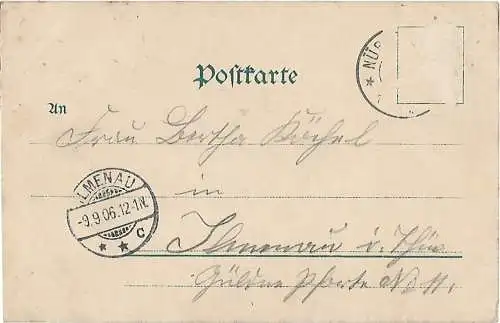 Postkarte
NÜR
An
Frau Bertha Küchel
ILMENAU
-9.9.06.12-1N.
C
in
Ilmenau i. Thür
Güldne Pforte No 11.